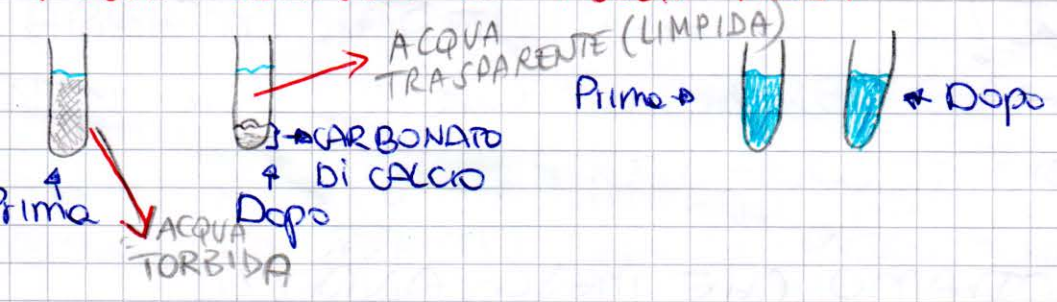 ACQUA
TRASPARENTE (LIMPIDA)
CARBONATO
DI CALCIO
Prima
Dopo
ACQUA
TORBIDA
Prima
Dopo